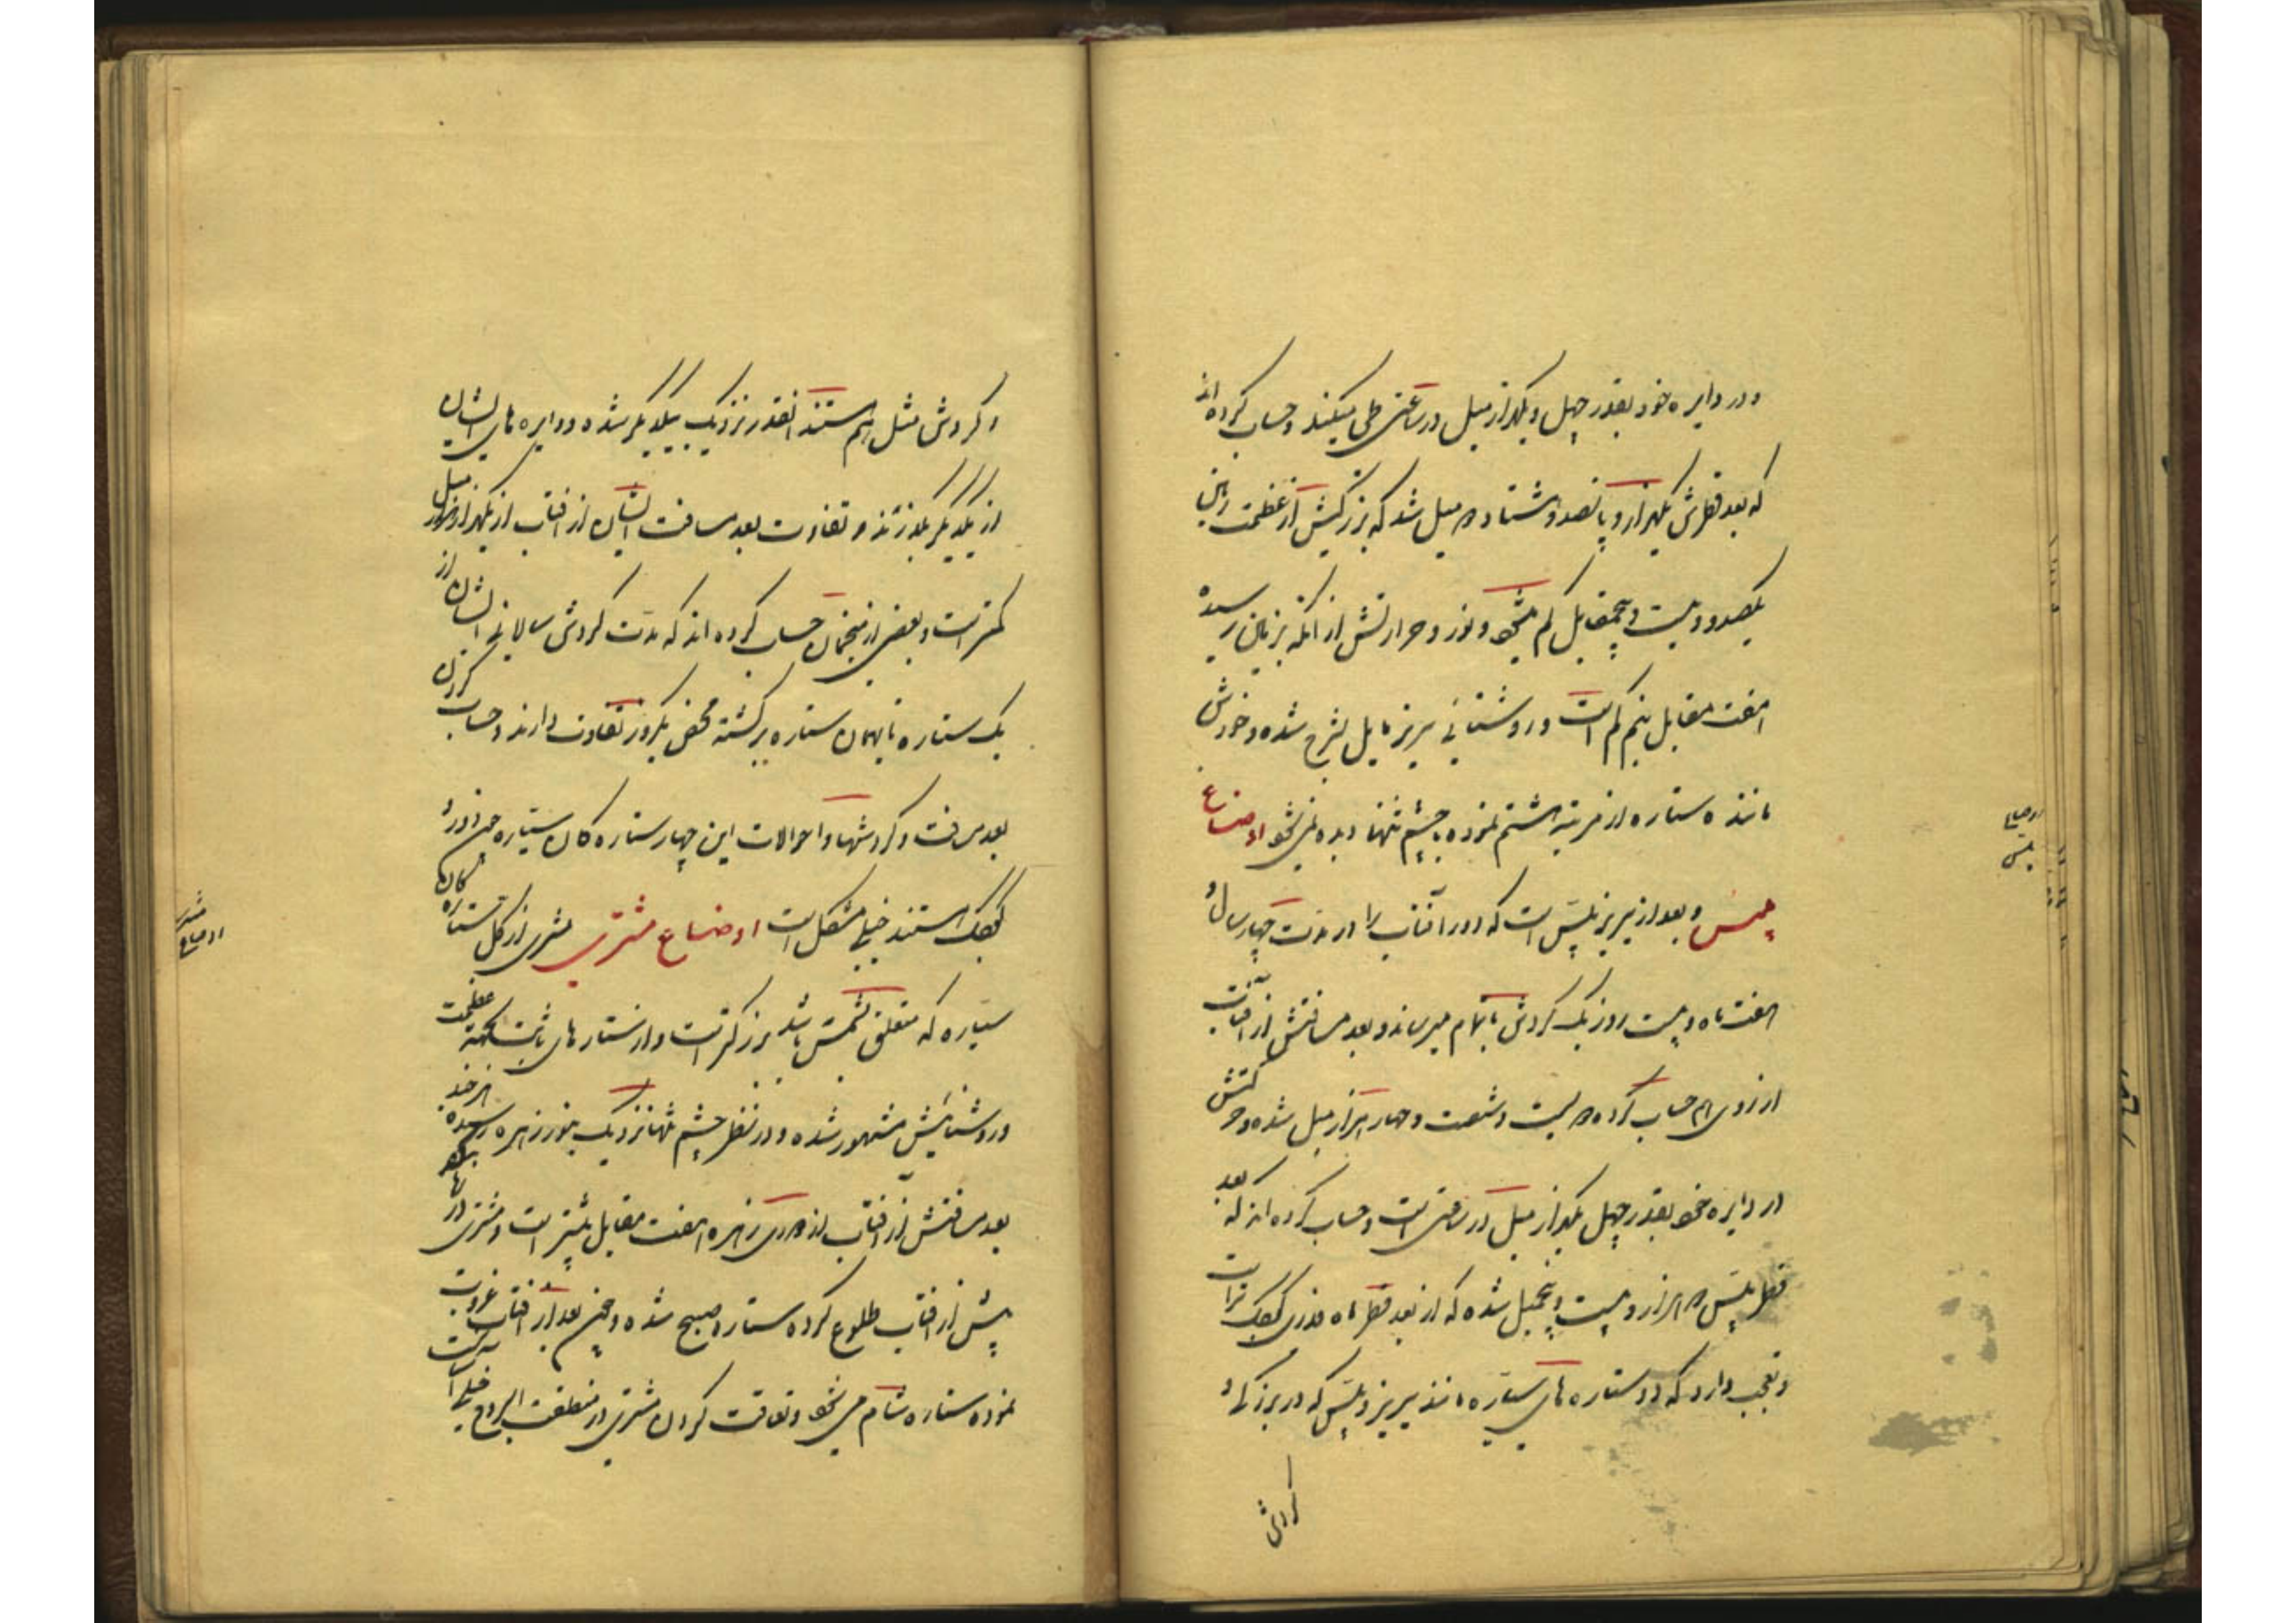 و در دایره خود بقدر چهل و یکهزار میل در ساعتی طی میکند و حساب کرده اند
که بعد قطرش یکهزار و پانصد و هشتاد و میل شد که بزرگیش از عظمت زمین
یکصد و بیست و پنج مقابل کم میشود و نور و حرارتش از آنکه بزمین رسیده
هفت مقابل نیم کم است و روشنائی سریز مایل بسرخ شده و خودش
مانند ستاره از مرتبه هشتم نموده بچشم تنها دیده نمیشود اوضاع
پلس و بعد از سریز پلس است که دور آفتاب را در مدت چهار سال و
هفت ماه و بیست روز یک گردش باتمام میرساند و بعد مسافتش از آفتاب
از روی هم حساب کرده دویست و شصت و چهار هزار میل شده و حرکتش
در دایره خود بقدر چهل یکهزار میل در ساعتی است و حساب کرده اند که بعد
قطر پلس دو هزار و بیست و پنج میل شده که از بعد قطر ماه قدری کوچک تر است
و تعجب دارد که دو ستاره های سیاره مانند سریز و پلس که در بزرگی و
گردش
اوضاع
پلس
و گردش مثل هم هستند آنقدر نزدیک بیکدیگر شده و دایره های ایشان
از یکدیگر بگذرند و تفاوت بعد مسافت ایشان از آفتاب از یکهزار میل
کمتر است و بعضی از منجمان حساب کرده اند که مدت گردش سالیانه ایشان از
یک ستاره تا بهمان ستاره برگشته محض یکروز تفاوت دارند و حساب کردن
بعد مسافت و گردشها و احوالات این چهار ستاره کان سیاره چون دور و
کوچک هستند خیلی مشکل است اوضاع مشتری مشتری از کل ستاره کان
سیاره که متعلق بشمس باشد بزرگتر است و از ستاره های ثابت بجهت عظمت
و روشنائیش مشهور شده و در نظر چشم تنها نزدیک بنور زهره رسیده هر چند
بعد مسافتش از آفتاب از دوری زهره هفت مقابل بیشتر است و مشتری
پیش از آفتاب طلوع کرده ستاره صبح شده و چون بعد از آفتاب غروب
نموده ستاره شام میشود و تفاوت کردن مشتری در منطقة البروج خیلی
اوضاع
مشتری